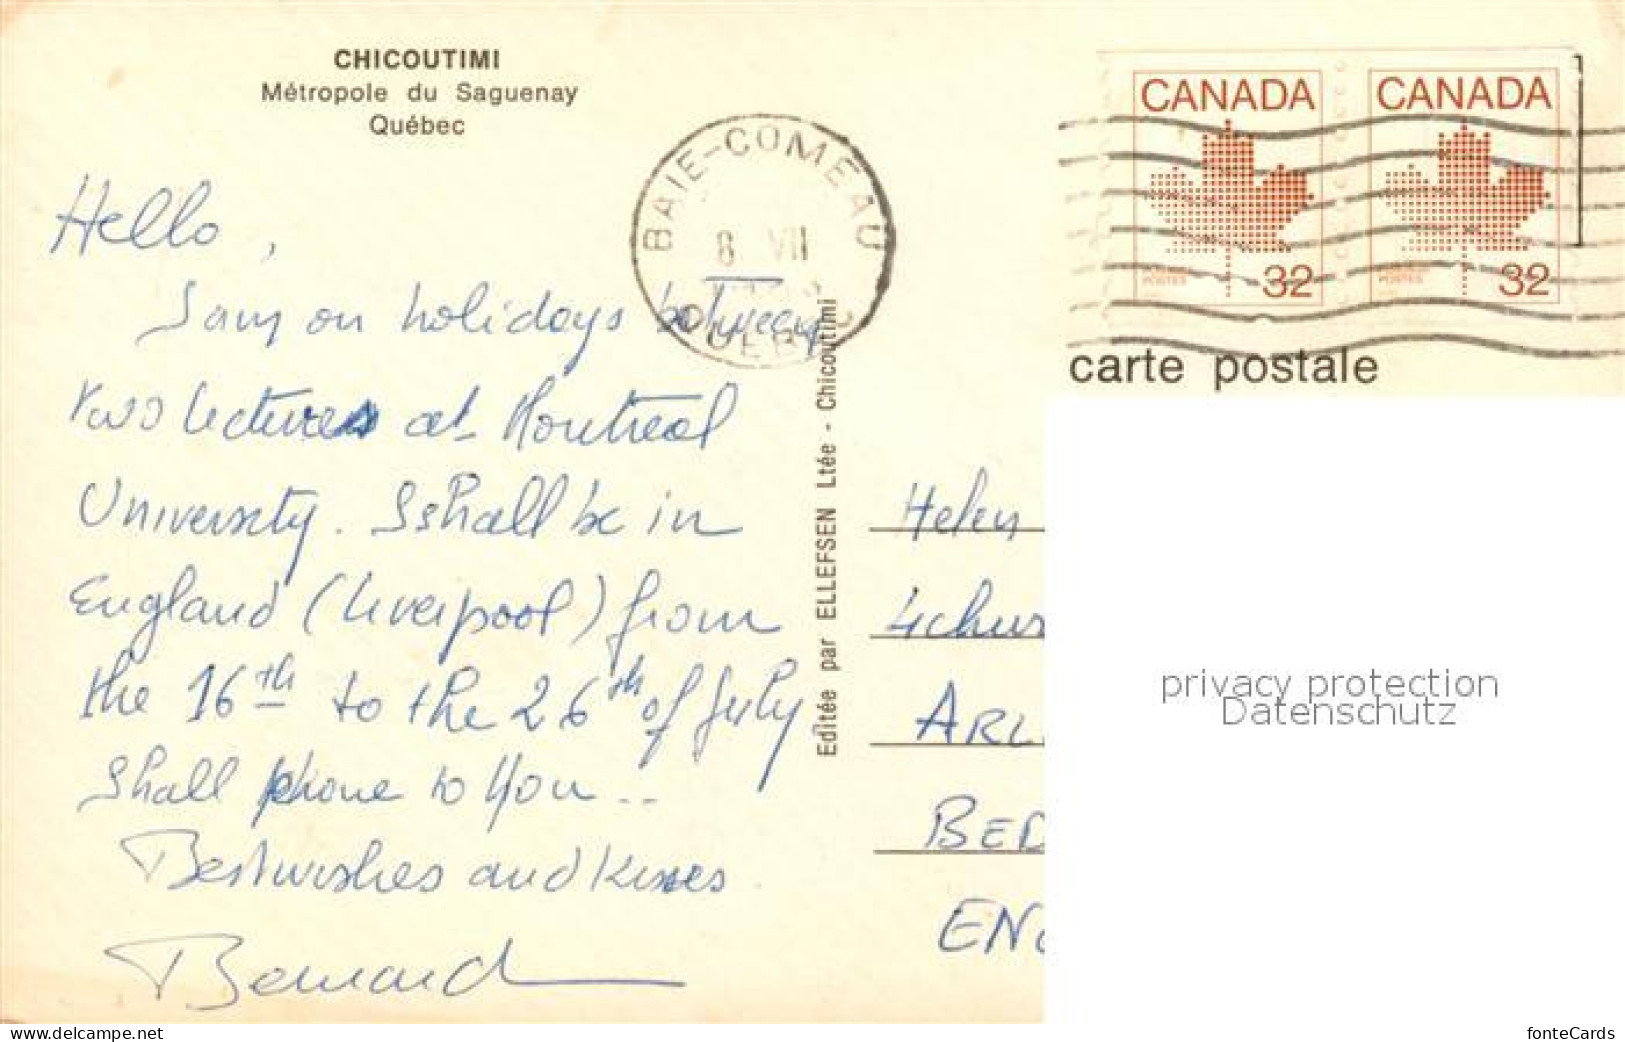 CHICOUTIMI
Métropole du Saguenay
Québec
BAIE-COMEAU
8 VII
CANADA
32
CANADA
32
carte postale
Hello,
I am on holidays between
two lectures at Montreal
University. I shall be in
England (Liverpool) from
the 16th to the 26th of July
Shall phone to you ..
Best wishes and Kisses
Bernard
Editée par ELLEFSEN Ltée - Chicoutimi
Helen
4 chur
ARL
BED
ENG
privacy protection
Datenschutz
www.delcampe.net
fonteCards